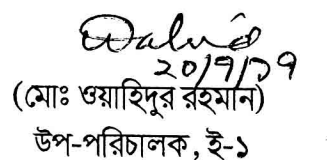 20/9/19
(মোঃ ওয়াহিদুর রহমান)
উপ-পরিচালক, ই-১